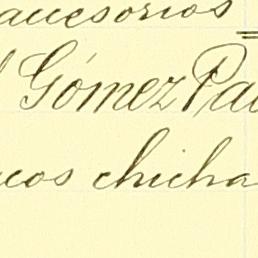 accesorios
Gómez Pa
cos chicha